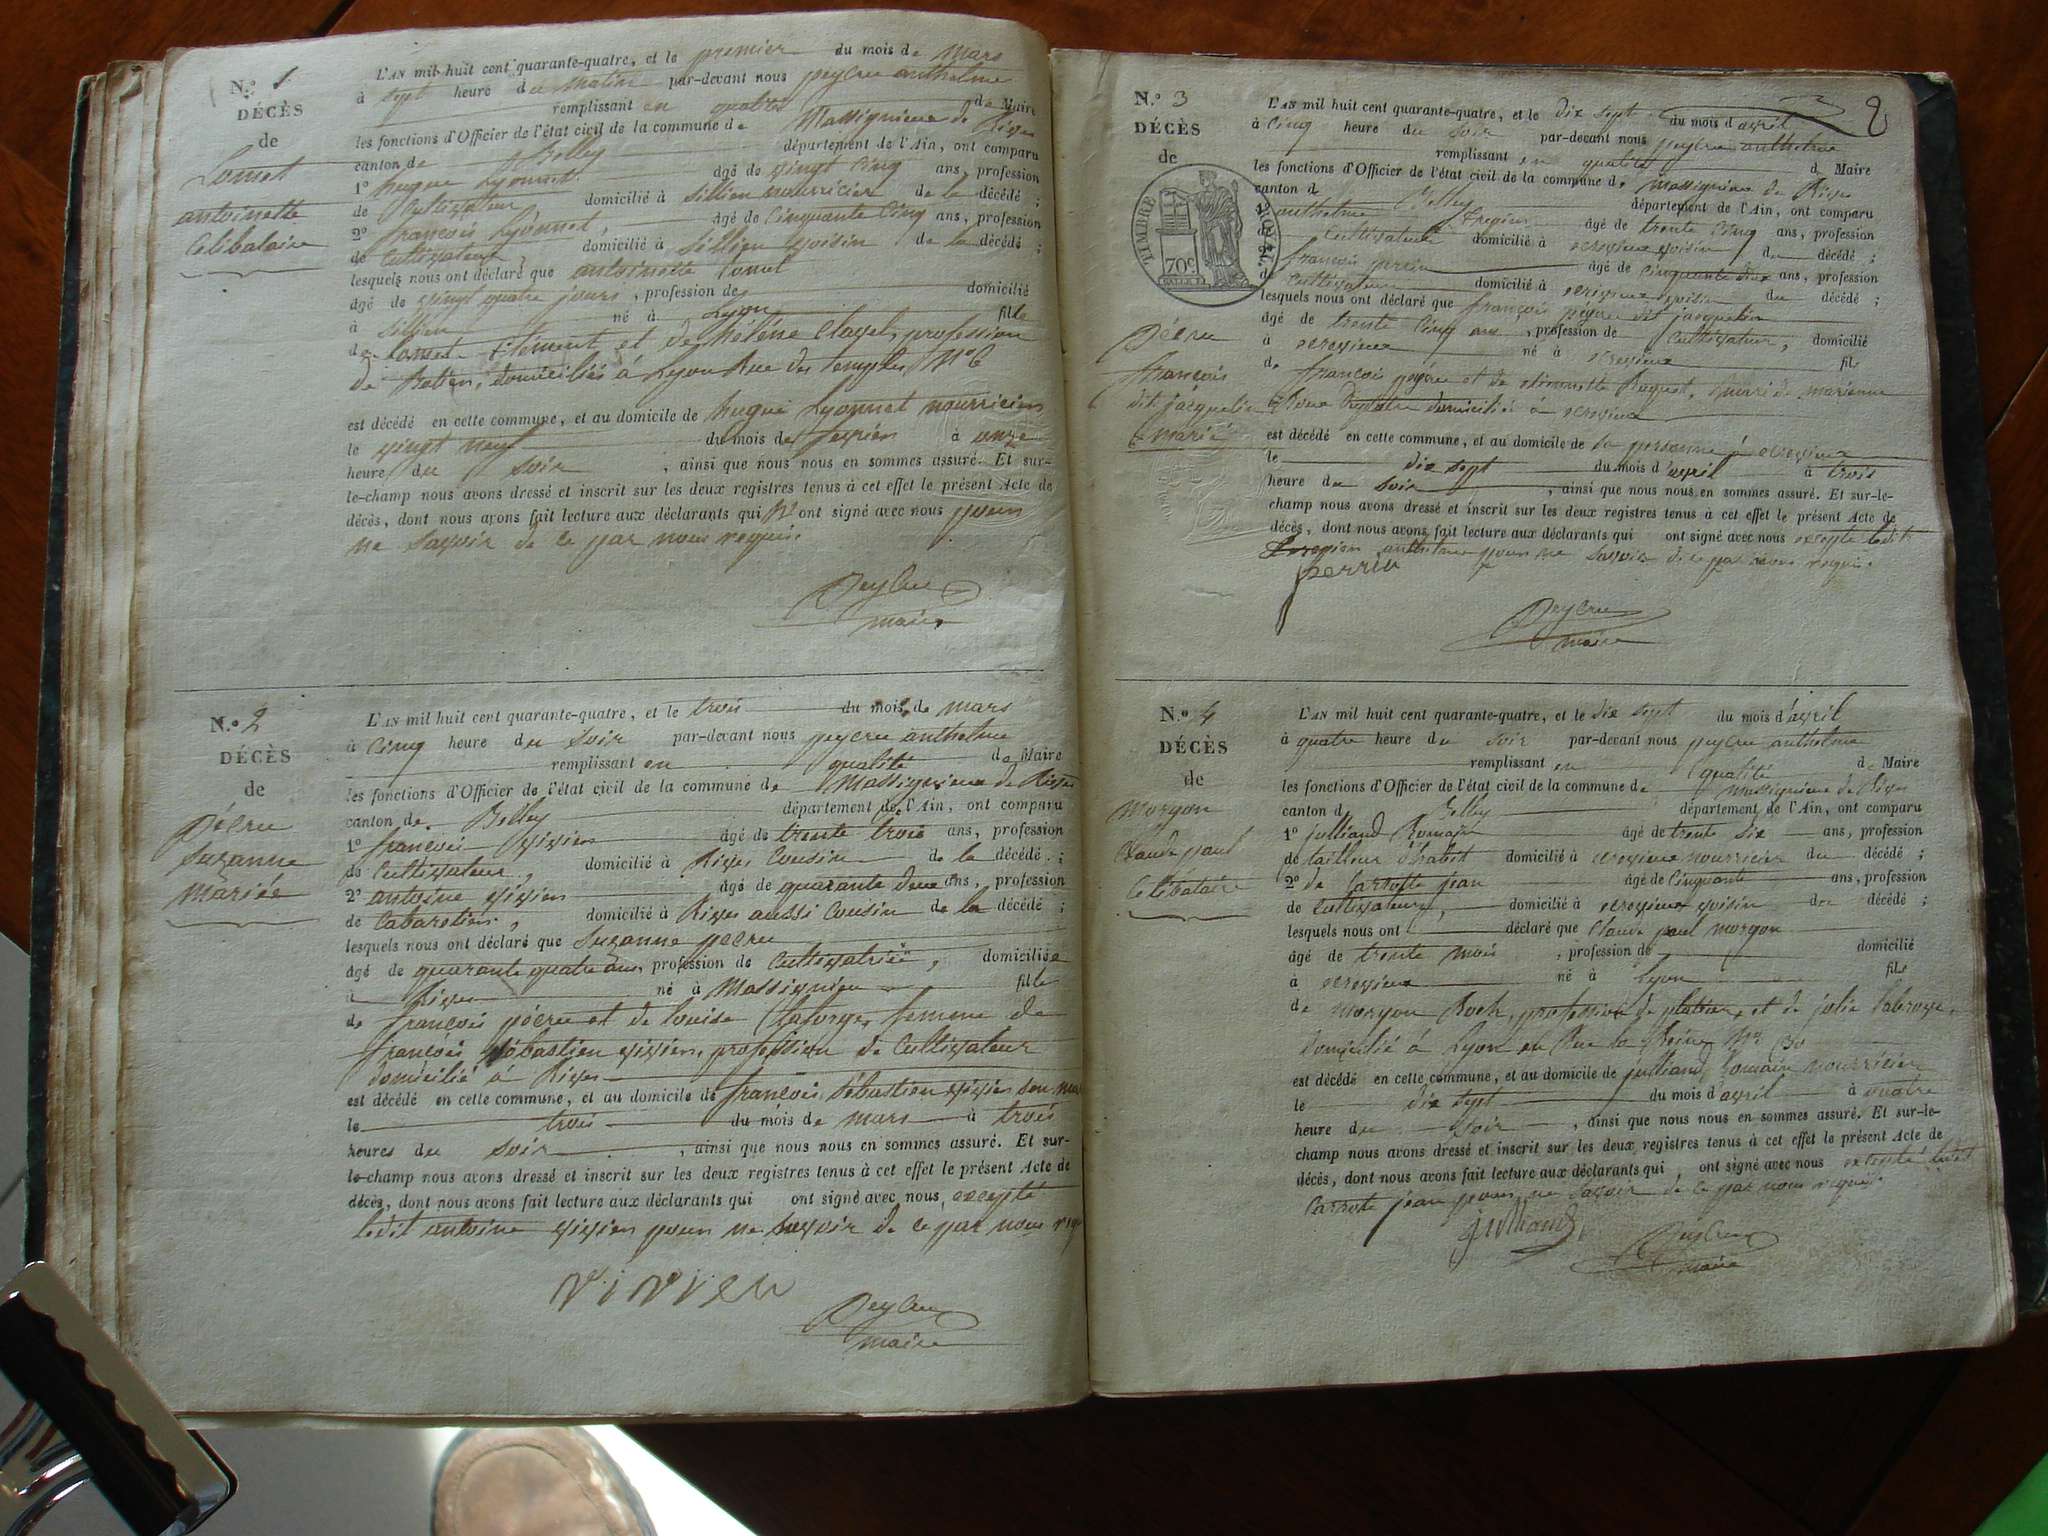 N.º 1.
DÉCÈS
de
Lomet
antoinette
Celibataire
L'AN mil huit cent quarante-quatre, et le premier du mois de mars
à sept heure du matin par-devant nous peycru anthelme
remplissant en qualité de Maire
les fonctions d'Officier de l'état civil de la commune de Massignieu de Rives
canton de Belley département de l'Ain, ont comparu
1º hugue Lyonnet âgé de vingt cinq ans, profession
de Cultivateur domicilié à Sillien nourricier de la décédé ;
2º françois Lyonnet, âgé de Cinquante Cinq ans, profession
de Cultivateur, domicilié à Sillien voisin de la décédé ;
lesquels nous ont déclaré que antoinette Lomet
âgé de vingt quatre jours, profession de domicilié
à Sillien né à Lyon fille
de Lomet Clément et de hélène Clayel, profession
de domiciliés à Lyon Rue des temples Nº 6
est décédé en cette commune, et au domicile de hugue Lyonnet nourricier
le vingt neuf du mois de fevrier à onze
heure du soir, ainsi que nous nous en sommes assuré. Et sur-
le-champ nous avons dressé et inscrit sur les deux registres tenus à cet effet le présent Acte de
décès, dont nous avons fait lecture aux déclarants qui n' ont signé avec nous pour
ne savoir de ce par nous requis.
Peycru
maire
N.º 2
DÉCÈS
de
Pécru
Suzanne
Mariée
L'AN mil huit cent quarante-quatre, et le trois du mois de mars
à Cinq heure du soir par-devant nous peycru anthelme
remplissant en qualité de Maire
les fonctions d'Officier de l'état civil de la commune de Massignieu de Rives
canton de Belley département de l'Ain, ont comparu
1º françois vivien âgé de trente trois ans, profession
de Cultivateur, domicilié à Rives Cousin de la décédé ;
2º antoine vivien âgé de quarante deux ans, profession
de Cabaretier, domicilié à Rives aussi Cousin de la décédé ;
lesquels nous ont déclaré que Suzanne pecru
âgé de quarante quatre ans, profession de Cultivatrice, domiciliée
à Rives né à Massignieu fille
de françois pécru et de louise Laforge, femme de
françois Sébastien vivien, profession de Cultivateur
domicilié à Rives
est décédé en cette commune, et au domicile de françois Sébastien vivien son mari
le trois du mois de mars à trois
heures du soir, ainsi que nous nous en sommes assuré. Et sur-
le-champ nous avons dressé et inscrit sur les deux registres tenus à cet effet le présent Acte de
décès, dont nous avons fait lecture aux déclarants qui ont signé avec nous, excepté
ledit antoine vivien pour ne savoir de ce par nous requis
vivien
Peycru
maire
8
N.º 3
DÉCÈS
de
TIMBRE ROYAL
70c
Pécru
françois
dit jacquelin
marié
L'AN mil huit cent quarante-quatre, et le dix sept du mois d'avril
à Cinq heure du soir par-devant nous peycru anthelme
remplissant en qualité de Maire
les fonctions d'Officier de l'état civil de la commune de Massignieu de Rives
canton de Belley département de l'Ain, ont comparu
1º anthelme âgé de trente Cinq ans, profession
de Cultivateur domicilié à voisin du décédé ;
2º françois perrin âgé de Cinquante deux ans, profession
de Cultivateur domicilié à voisin du décédé ;
lesquels nous ont déclaré que françois pécru dit jacquelin
âgé de trente Cinq ans, profession de Cultivateur, domicilié
à né à fils
de françois pécru et de Ruquet, mari de marianne
domiciliés à
est décédé en cette commune, et au domicile de sa personne à
le dix sept du mois d'avril à trois
heure du soir, ainsi que nous nous en sommes assuré. Et sur-le-
champ nous avons dressé et inscrit sur les deux registres tenus à cet effet le présent Acte de
décès, dont nous avons fait lecture aux déclarants qui ont signé avec nous excepté ledit
anthelme pour ne savoir de ce par nous requis.
perrin
Peycru
maire
N.º 4
DÉCÈS
de
Morgon
Claude paul
Celibataire
L'AN mil huit cent quarante-quatre, et le dix sept du mois d'avril
à quatre heure du soir par-devant nous peycru anthelme
remplissant en qualité de Maire
les fonctions d'Officier de l'état civil de la commune de Massignieu de Rives
canton de Belley département de l'Ain, ont comparu
1º julliand Romain âgé de trente six ans, profession
de tailleur d'habit domicilié à nourricier du décédé ;
2º de Carrotte jean âgé de Cinquante ans, profession
de Cultivateur, domicilié à voisin du décédé ;
lesquels nous ont déclaré que Claude paul morgon
âgé de trente mois, profession de domicilié
à né à Lyon fils
de morgon Roch, profession de platrier, et de julie
domicilié à Lyon en Rue la Reine Nº 30
est décédé en cette commune, et au domicile de julliand Romain nourricier
le dix sept du mois d'avril à quatre
heure du soir, ainsi que nous nous en sommes assuré. Et sur-le-
champ nous avons dressé et inscrit sur les deux registres tenus à cet effet le présent Acte de
décès, dont nous avons fait lecture aux déclarants qui ont signé avec nous excepté ledit
Carrotte jean pour ne savoir de ce par nous requis.
julliand
Peycru
maire